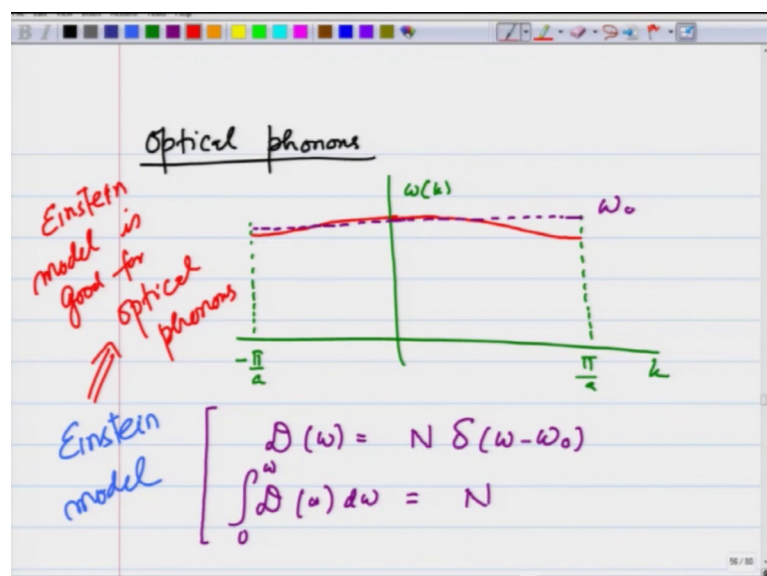 optical phonons
ω(k)
ω₀
Einstein
model is
good for
optical
phonons
-π/a
π/a
k
Einstein
model
D(ω) = N δ(ω-ω₀)
∫₀^ω D(ω) dω = N
56 / 80